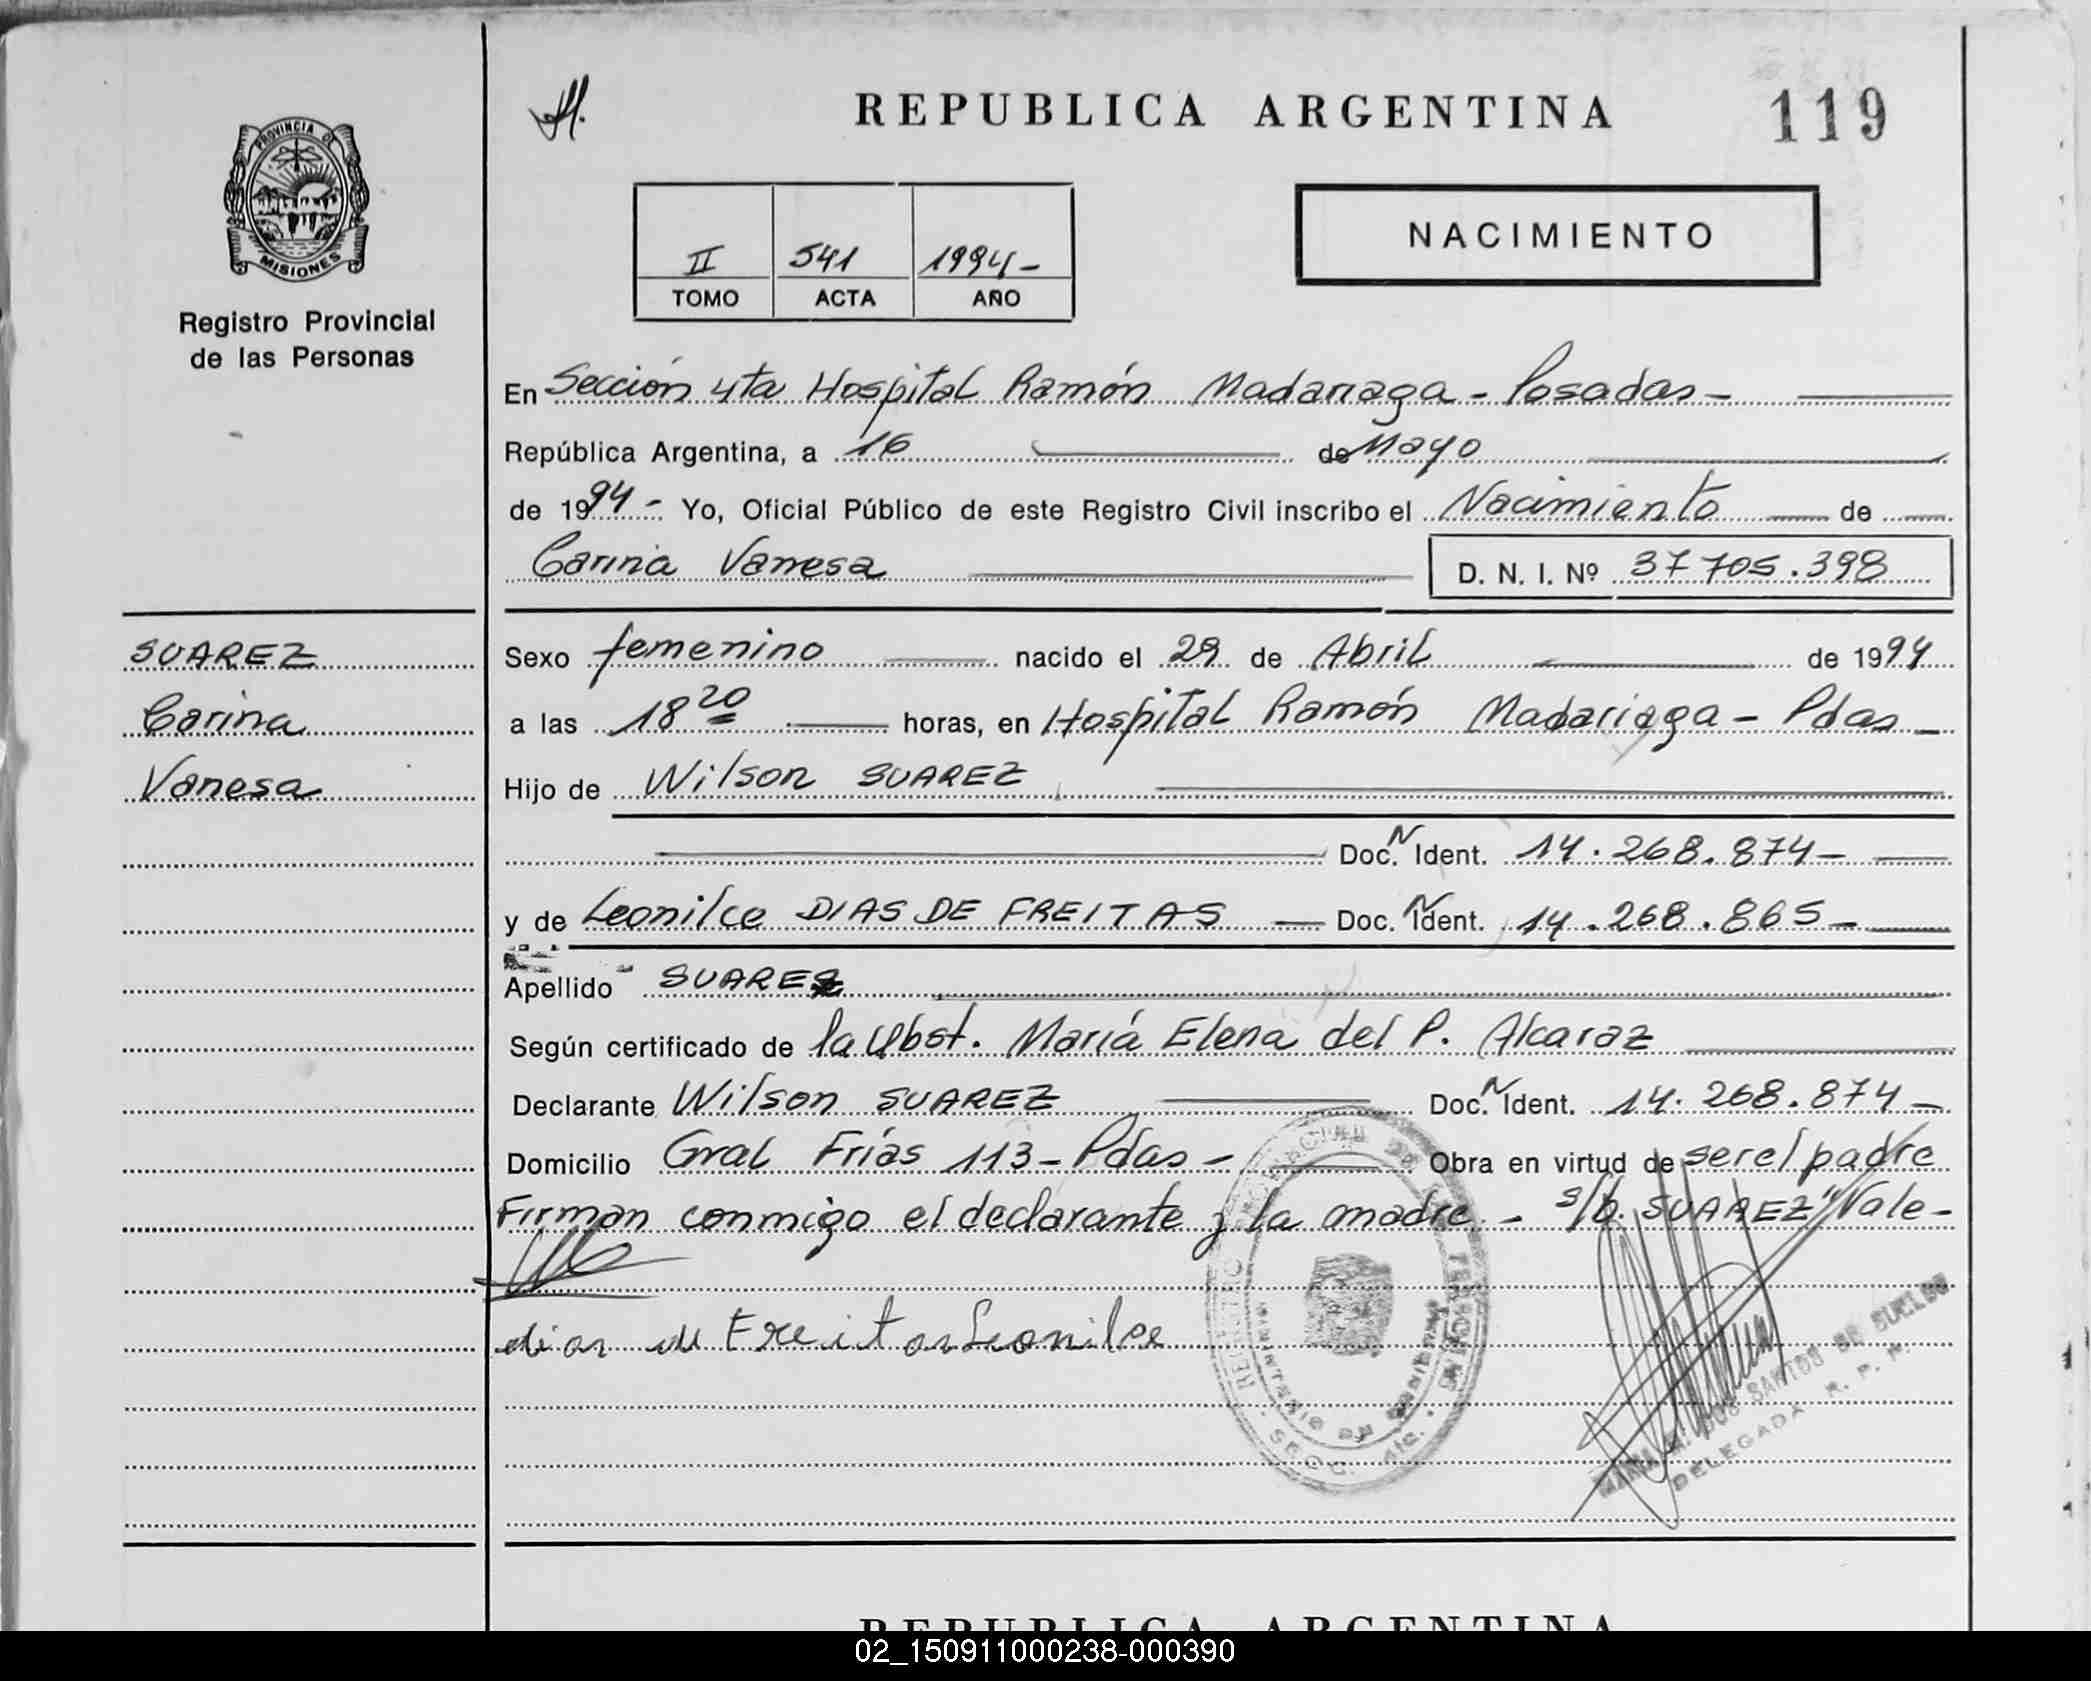 REPUBLICA ARGENTINA
119
PROVINCIA DE
MISIONES
Registro Provincial
de las Personas
II 541 1994-
TOMO ACTA AÑO
NACIMIENTO
En Sección 4ta Hospital Ramón Madariaga - Posadas -
República Argentina, a 16 de Mayo
de 1994 - Yo, Oficial Público de este Registro Civil inscribo el Nacimiento de
Carina Vanesa D. N. I. Nº 37705.398
SUAREZ
Carina
Vanesa
Sexo femenino nacido el 29 de Abril de 1994
a las 18 20 horas, en Hospital Ramón Madariaga - Pdas -
Hijo de Wilson SUAREZ
Doc. N Ident. 14.268.874-
y de Leonilce DIAS DE FREITAS Doc. N Ident. 14.268.865-
Apellido SUAREZ
Según certificado de la Obst. María Elena del P. Alcaraz
Declarante Wilson SUAREZ Doc. N Ident. 14.268.874-
Domicilio Gral Frías 113 - Pdas - Obra en virtud de ser el padre
Firman conmigo el declarante y la madre. - s/b. SUAREZ" Vale-
dias de Freitas Leonilce
DOS SANTOS DE
DELEGADA R. P. P.
REPUBLICA ARGENTINA
02_150911000238-000390